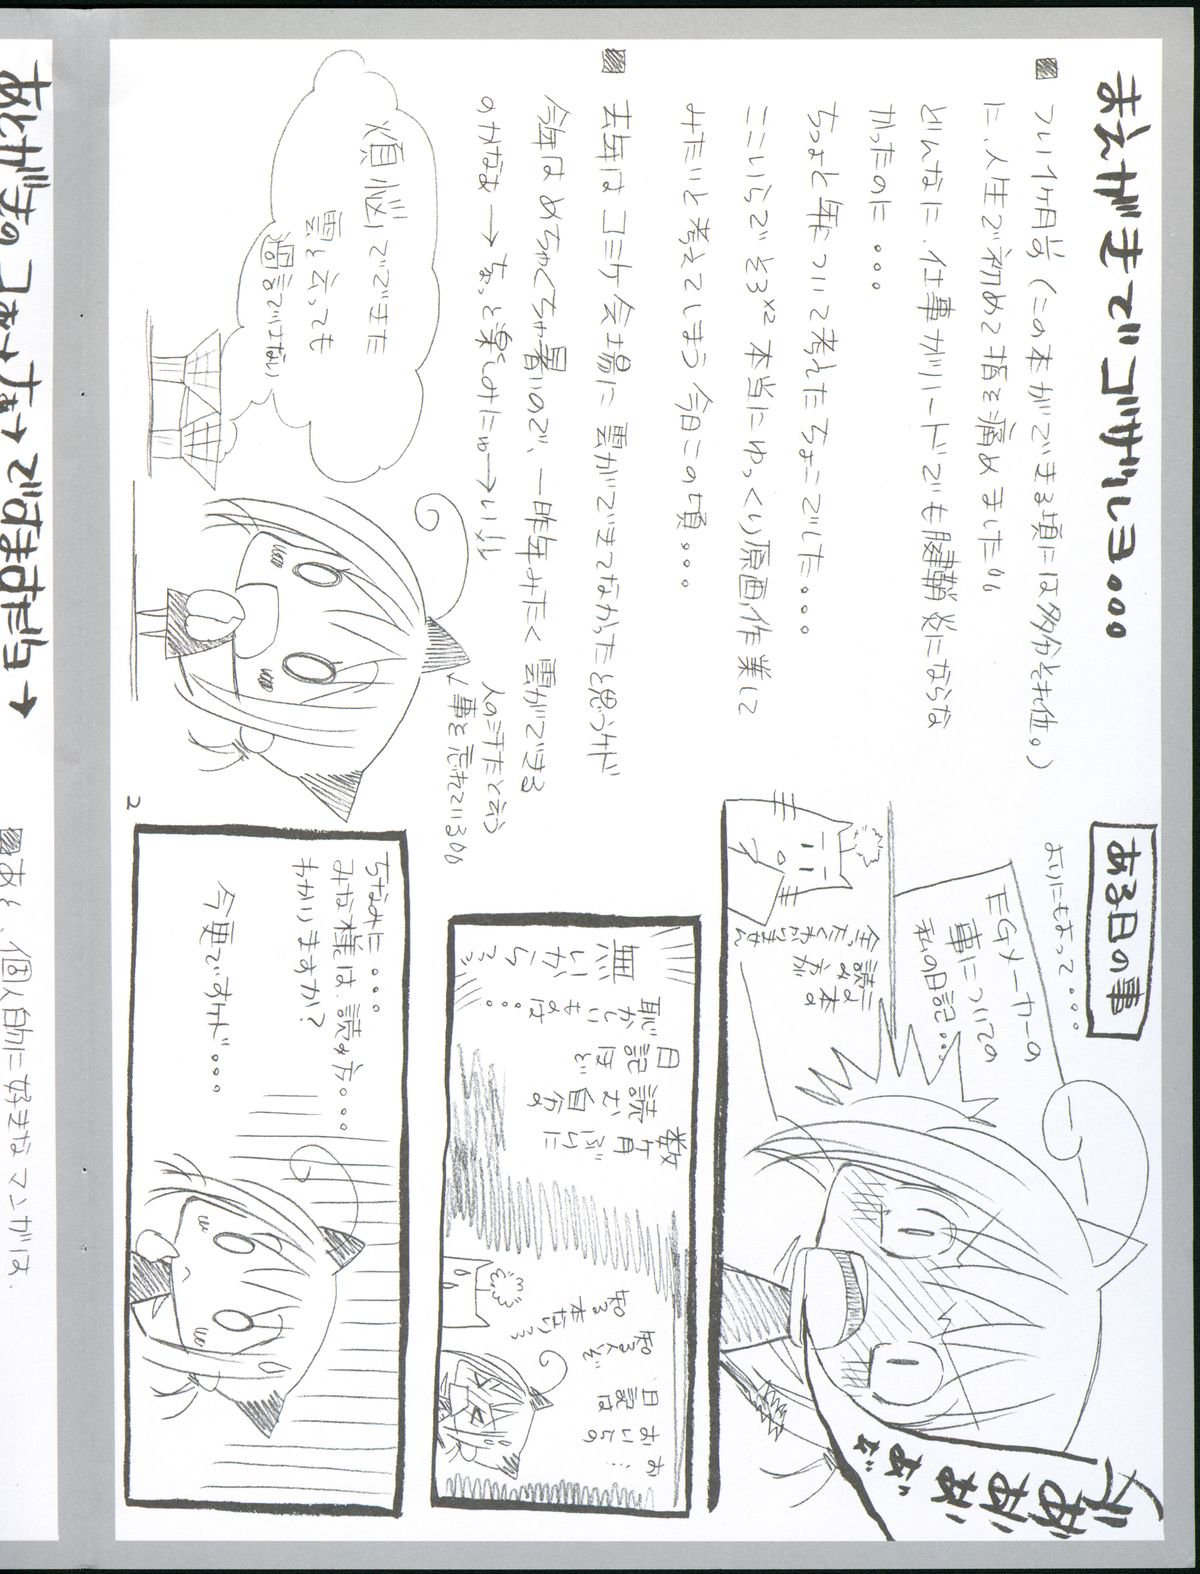 まえがきでゴザルヨ。。。
■ つい1ヶ月尚(この本ができる頃には多分それ位。)
に、人生で初めて指を痛めました
どんなに、仕事がハードでも腱鞘炎にならな
かったのに・・・
ちょと年について考えたちょこでした・・・
ここいらでそろ×2 本当にゆっくり原画作業して
みたいと考えてしまう今日この頃・・・
■ 去年はコミケ会場に雲ができてなかったと思うケド
今年はめちゃくちゃ暑いので、一昨年みたく雲ができる
のかなぁ→ちょっと楽しみにゅ→
人の汗だと言う
事を忘れている
煩悩でできた
雲と言っても
過言ではない
2
ある日の事
おりにもよって・・・
EGメーカーの
事についての
私の日記・・・
この本の
読み方が
全ったくわかりません
数ヶ月ぶりに
読む自分の
日記ほど
恥かしいものは
無いから
お…
おいらの
日記は
知るくぞ
ちなみに・・・
みな様は、読み方・・・
わかりますか?
今更ですケド・・・
■あと、個人的に好きなマンガは、